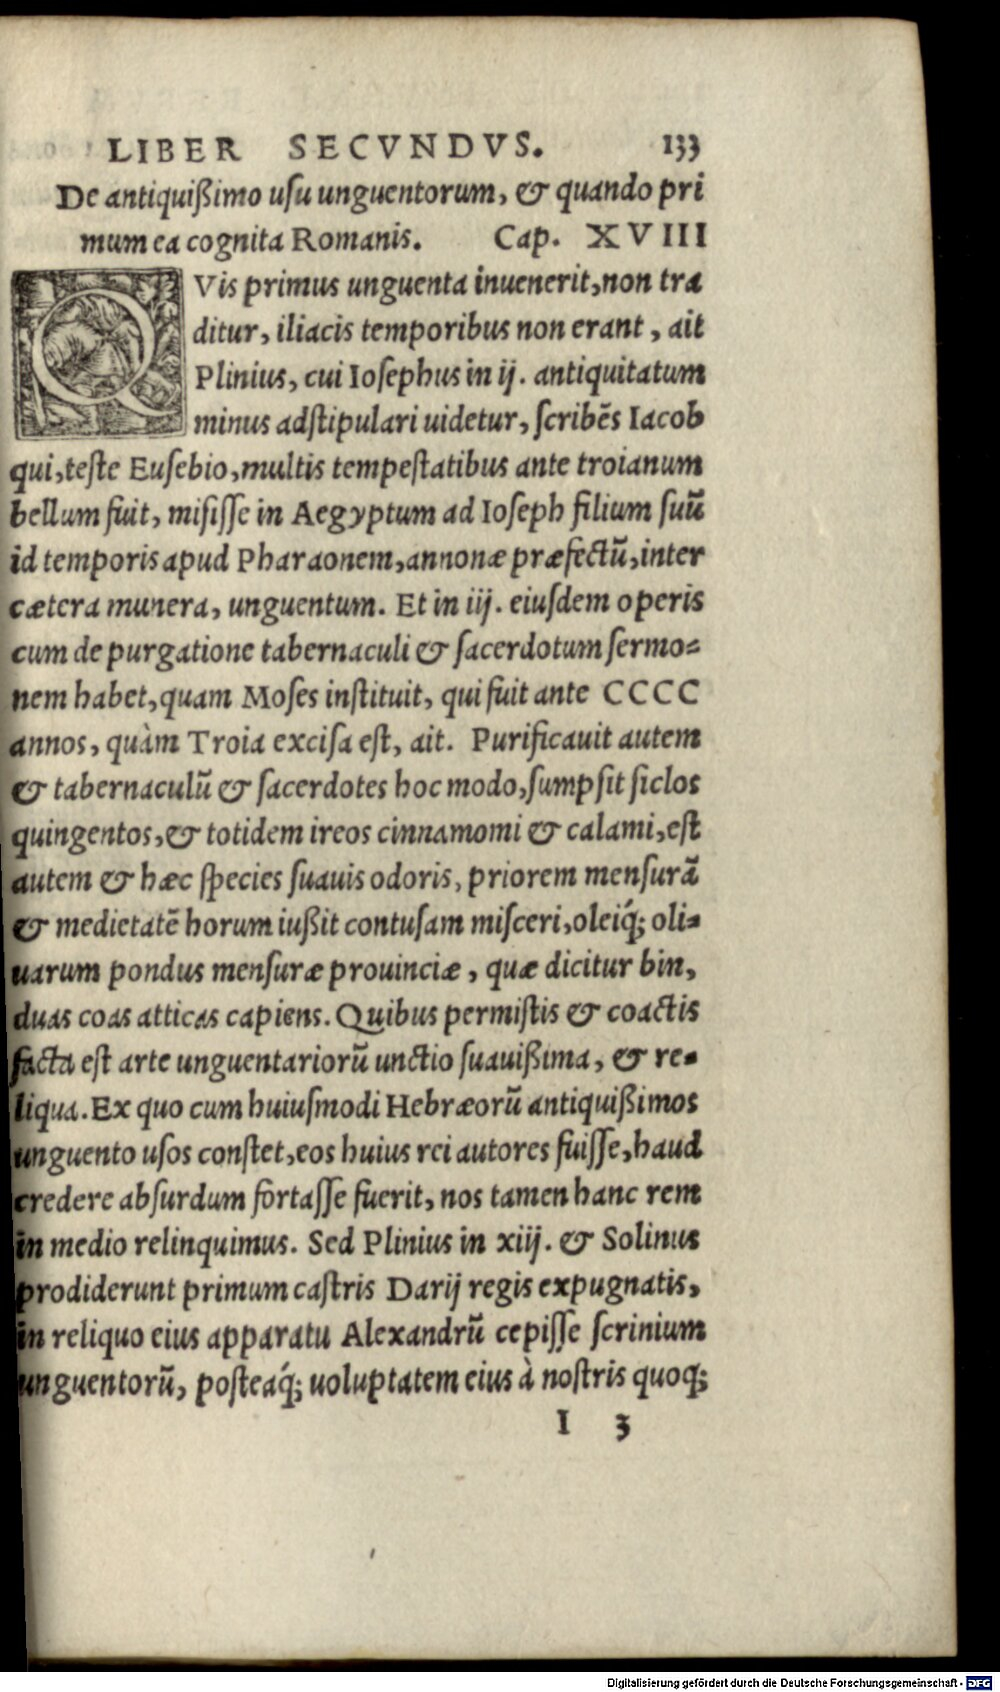 LIBER SECVNDVS. 133
De antiquißimo usu unguentorum, & quando pri
mum ea cognita Romanis. Cap. XVIII
QVis primus unguenta inuenerit, non tra
ditur, iliacis temporibus non erant, ait
Plinius, cui Iosephus in ij. antiquitatum
minus adstipulari uidetur, scribẽs Iacob
qui, teste Eusebio, multis tempestatibus ante troianum
bellum fuit, misisse in Aegyptum ad Ioseph filium suũ
id temporis apud Pharaonem, annonæ præfectũ, inter
cætera munera, unguentum. Et in iij. eiusdem operis
cum de purgatione tabernaculi & sacerdotum sermo=
nem habet, quam Moses instituit, qui fuit ante CCCC
annos, quàm Troia excisa est, ait. Purificauit autem
& tabernaculũ & sacerdotes hoc modo, sumpsit siclos
quingentos, & totidem ireos cinnamomi & calami, est
autem & hæc species suauis odoris, priorem mensurã
& medietatẽ horum iußit contusam misceri, oleiq́; oli=
uarum pondus mensuræ prouinciæ, quæ dicitur bin,
duas coas atticas capiens. Quibus permistis & coactis
facta est arte unguentariorũ unctio suauißima, & re=
liqua. Ex quo cum huiusmodi Hebræorũ antiquißimos
unguento usos constet, eos huius rei autores fuisse, haud
credere absurdum fortasse fuerit, nos tamen hanc rem
in medio relinquimus. Sed Plinius in xiij. & Solinus
prodiderunt primum castris Darij regis expugnatis,
in reliquo eius apparatu Alexandrũ cepisse scrinium
unguentorũ, posteaq́; uoluptatem eius à nostris quoq;
I 3
Digitalisierung gefördert durch die Deutsche Forschungsgemeinschaft - DFG